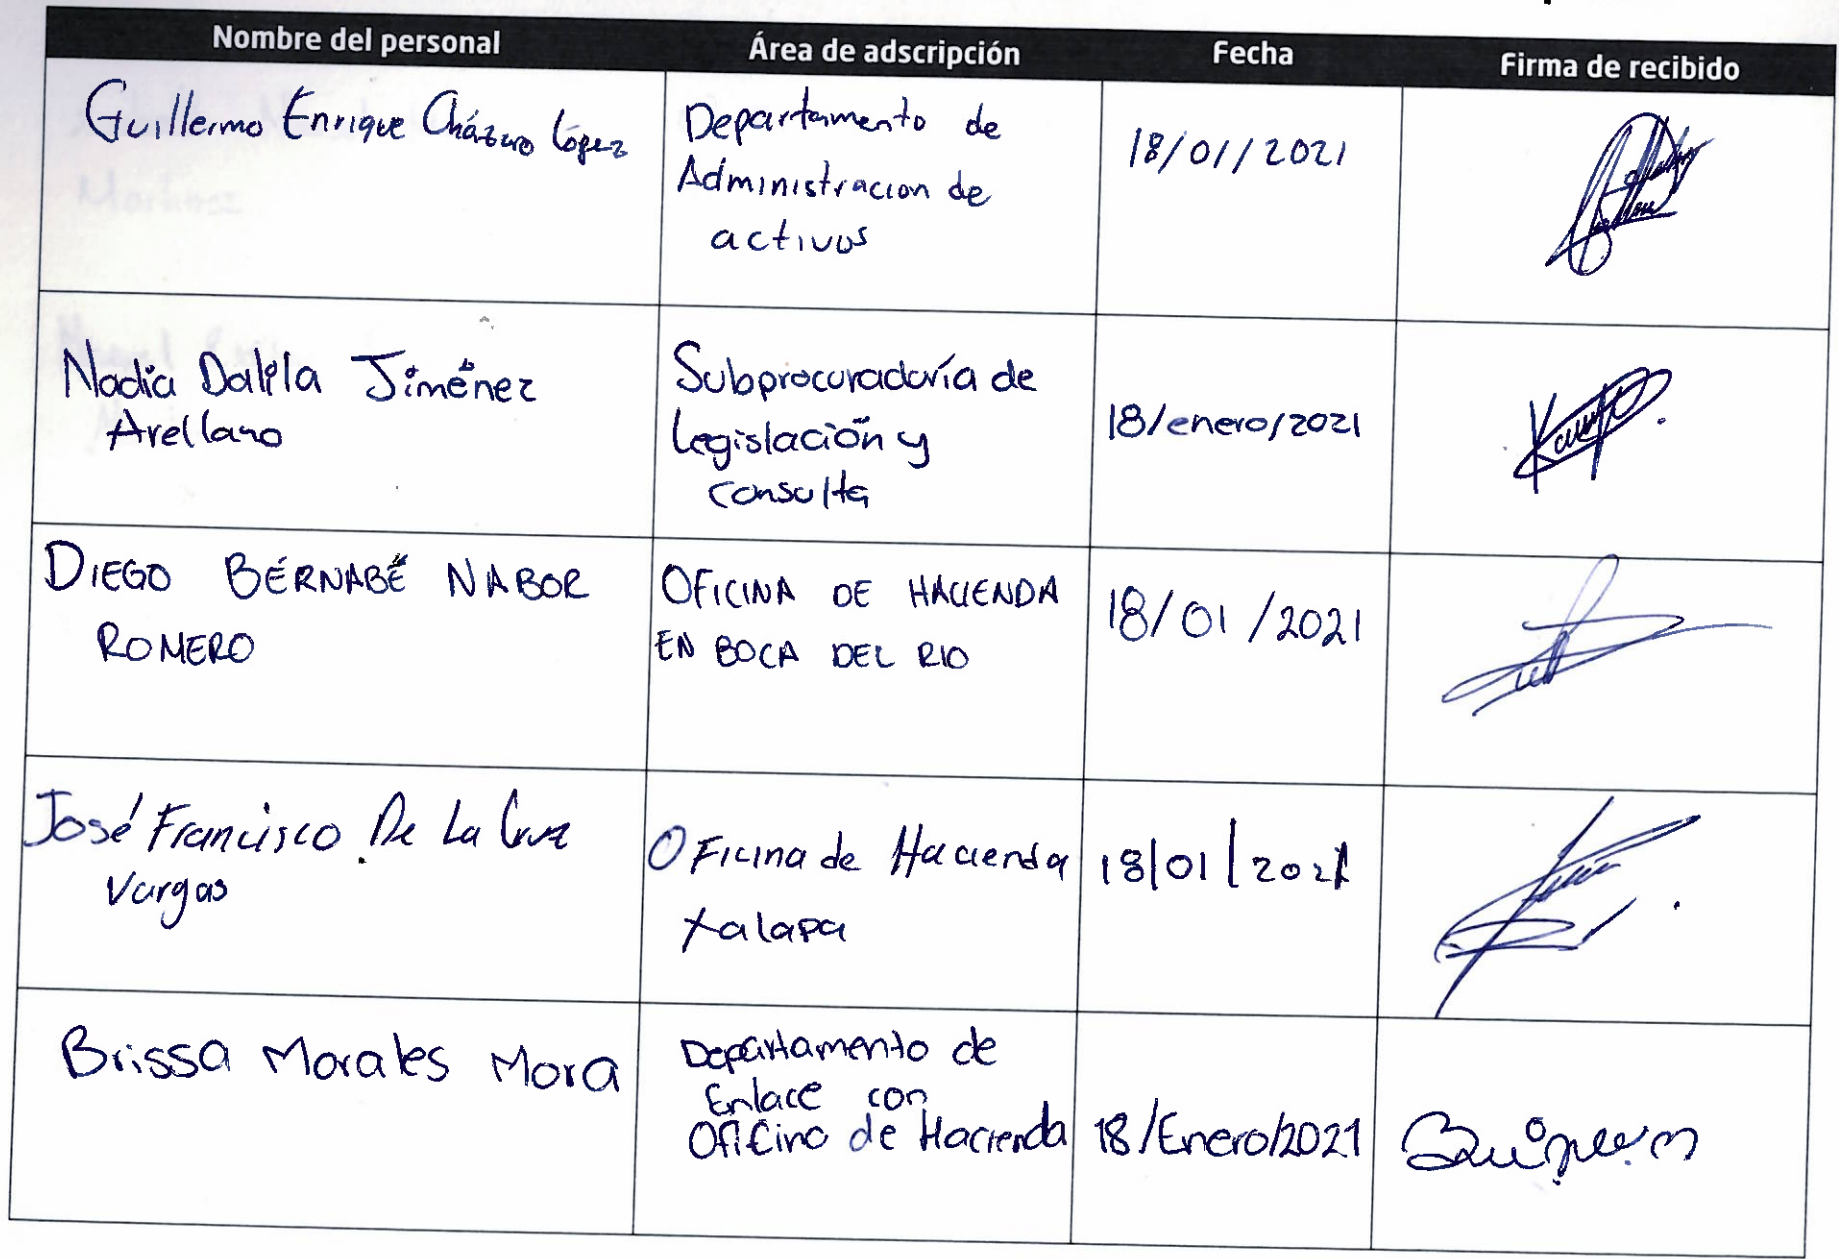 Nombre del personal Área de adscripción Fecha Firma de recibido
Guillermo Enrique Cházaro López
Departamento de
Administracion de
activos
18/01/2021
Nadia Dalila Jiménez
Arellano
Subprocuraduría de
Legislación y
consulta
18/enero/2021
DIEGO BERNABÉ NABOR
ROMERO
OFICINA DE HACIENDA
EN BOCA DEL RIO
18/01/2021
José Francisco De La Cruz
Vargas
Oficina de Hacienda
Xalapa
18/01/2021
Brissa Morales Mora
Departamento de
Enlace con
Oficina de Hacienda
18/Enero/2021